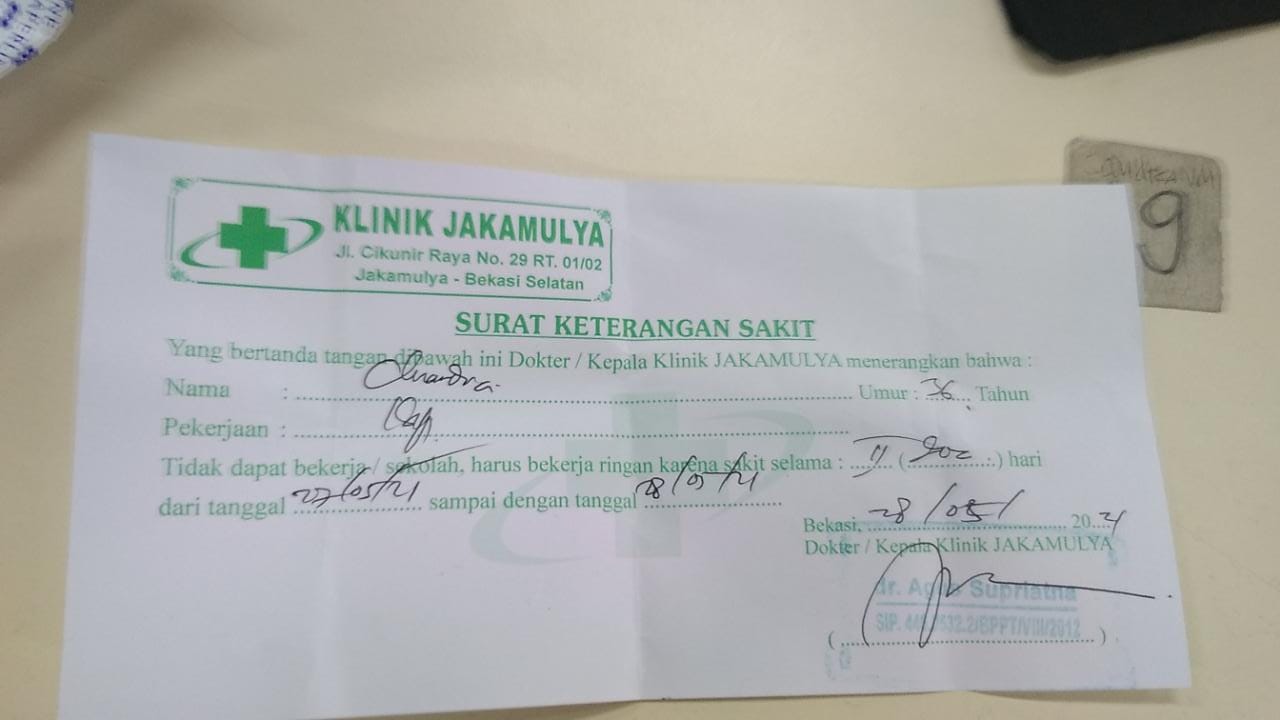 KLINIK JAKAMULYA
Jl. Cikunir Raya No. 29 RT. 01/02
Jakamulya - Bekasi Selatan
SURAT KETERANGAN SAKIT
Yang bertanda tangan dibawah ini Dokter / Kepala Klinik JAKAMULYA menerangkan bahwa :
Nama : Chandra. Umur : 36 Tahun
Pekerjaan :
Tidak dapat bekerja / sekolah, harus bekerja ringan karena sakit selama : II (Dua) hari
dari tanggal 27/05/21 sampai dengan tanggal 28/05/21
Bekasi, 28/05/ 2021
Dokter / Kepala Klinik JAKAMULYA
dr. Agus Supriatna
9